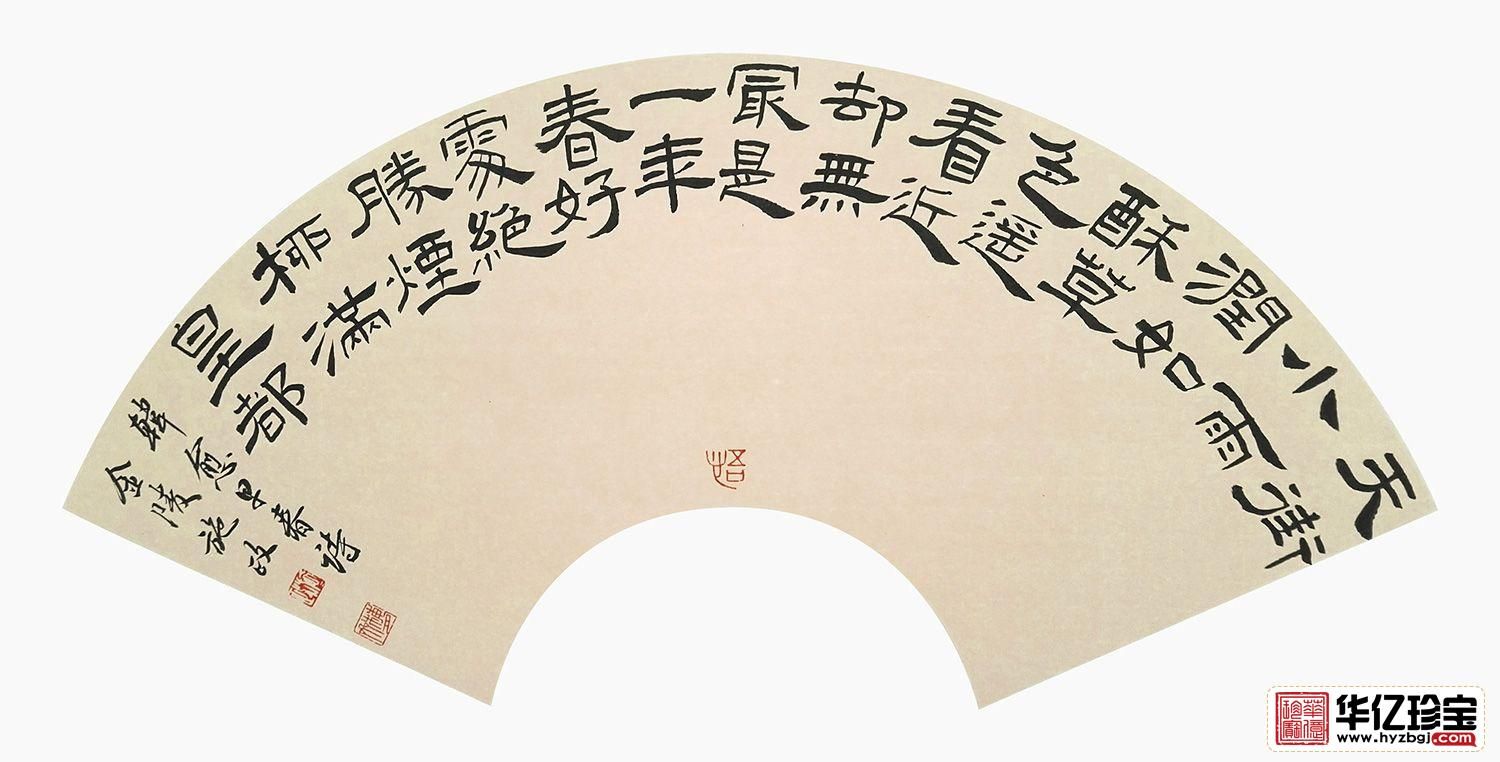 天街
小雨
潤如
酥草
色遥
看近
却無
冣是
一年
春好
處絕
勝煙
柳滿
皇都
韓愈早春詩
金陵施政
华亿珍宝
www.hyzbgj.com